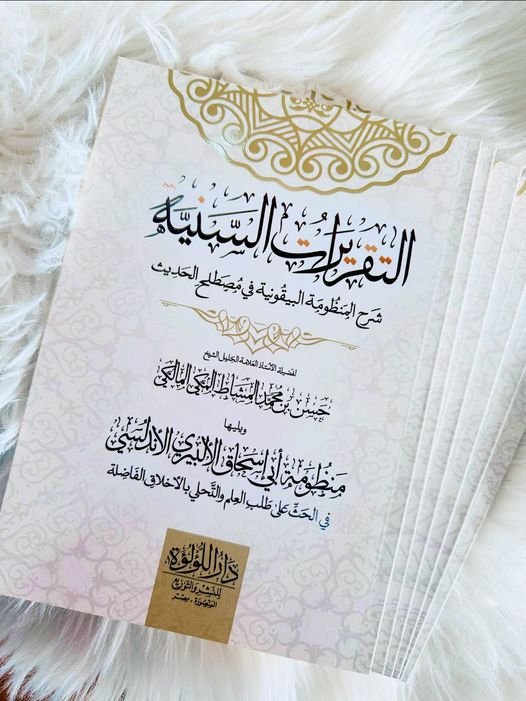 التقريرات السَّنيَّة
شَرح المَنظُومَة البيقُونية في مُصطَلح الحَديث
لفَضيلة الأستاذ العَلّامة الجَليل الشيخ
حَسَن بن محمد المشاط المكي المالكي
ويليها
مَنظُومَة أبي إسحاق الألبيري الأندلسي
في الحَثِّ عَلى طَلب العِلم والتَّحلي بالأخلاق الفَاضِلة
دَار اللؤلؤة
للنَشِر والتَوزيع
المنصُورَة - مِصْر